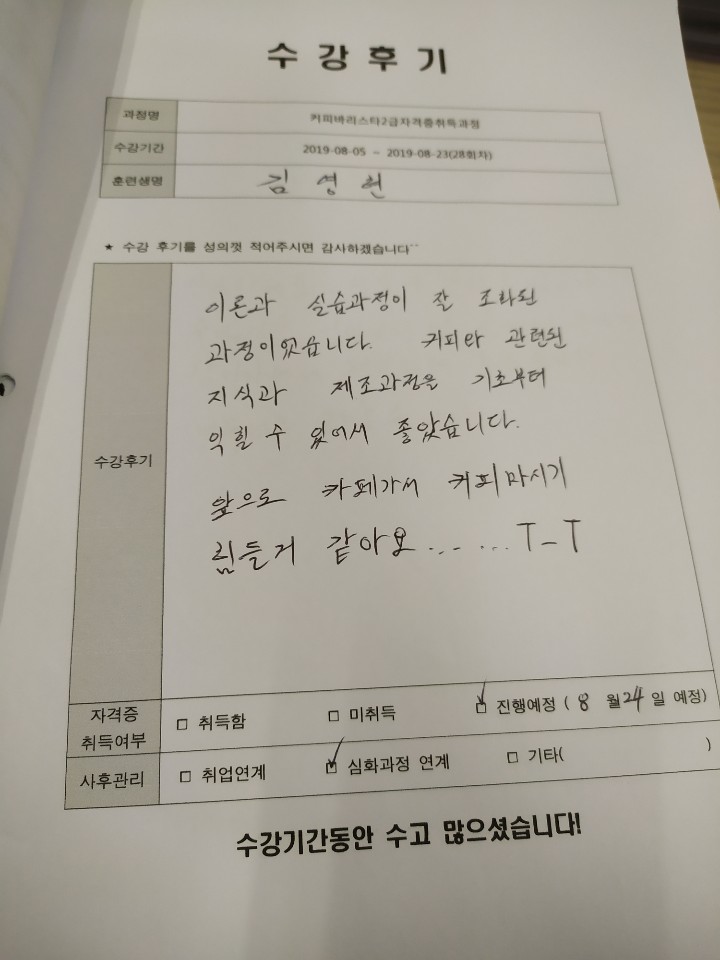 수강후기
과정명 커피바리스타2급자격증취득과정
수강기간 2019-08-05 ~ 2019-08-23(28회차)
훈련생명 김영헌
★ 수강 후기를 성의껏 적어주시면 감사하겠습니다~~
수강후기
이론과 실습과정이 잘 조화된
과정이었습니다. 커피와 관련된
지식과 제조과정을 기초부터
익힐 수 있어서 좋았습니다.
앞으로 카페가서 커피마시기
힘들거 같아요......T_T
자격증
취득여부
□ 취득함 □ 미취득 ☑ 진행예정 ( 8 월 24 일 예정)
사후관리 □ 취업연계 ☑ 심화과정 연계 □ 기타( )
수강기간동안 수고 많으셨습니다!